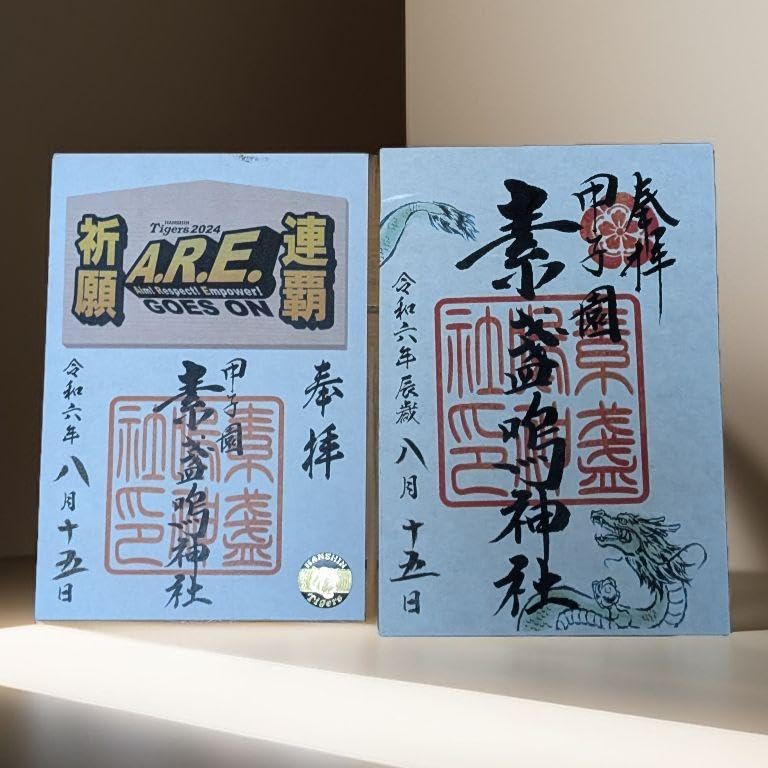 祈願
HANSHIN
Tigers 2024
A.R.E.
Aim! Respect! Empower!
GOES ON
連覇
奉拝
甲子園
素盞嗚神社
令和六年八月十五日
素盞
嗚神
社印
HANSHIN
Tigers
奉拝
甲子園
素盞嗚神社
令和六年辰歳八月十五日
素盞
嗚神
社印